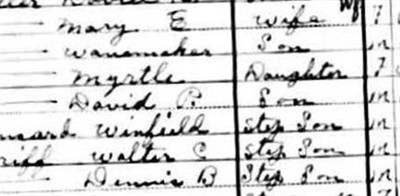 Mary E wife F
Wanamaker Son M
Myrtle Daughter F
David P. Son M
Winfield Step Son M
Walter C Step Son M
Dennis B Step Son M